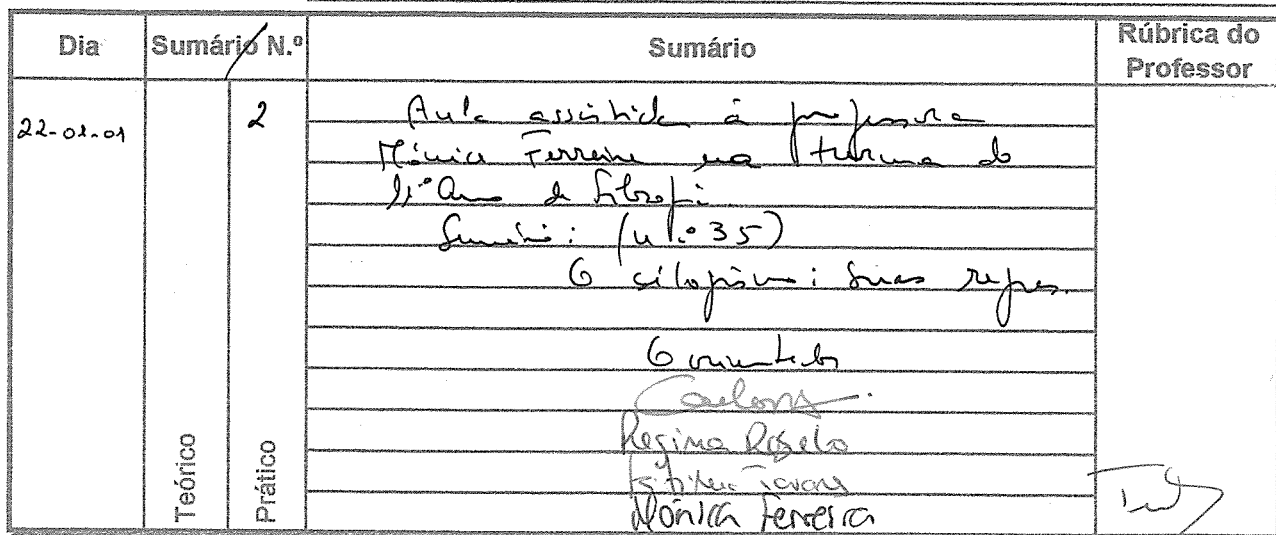 Dia Sumário N.º Sumário Rúbrica do Professor
22-01-01 2 Aula assistida à professora
Mónica Ferreira na turma do
11º Ano de Filosofia
Sumário: (n.º 35)
O silogismo: suas regras.
O orientador
Carlos
Regina Rabelo
Tavares
Mónica Ferreira
Teórico
Prático